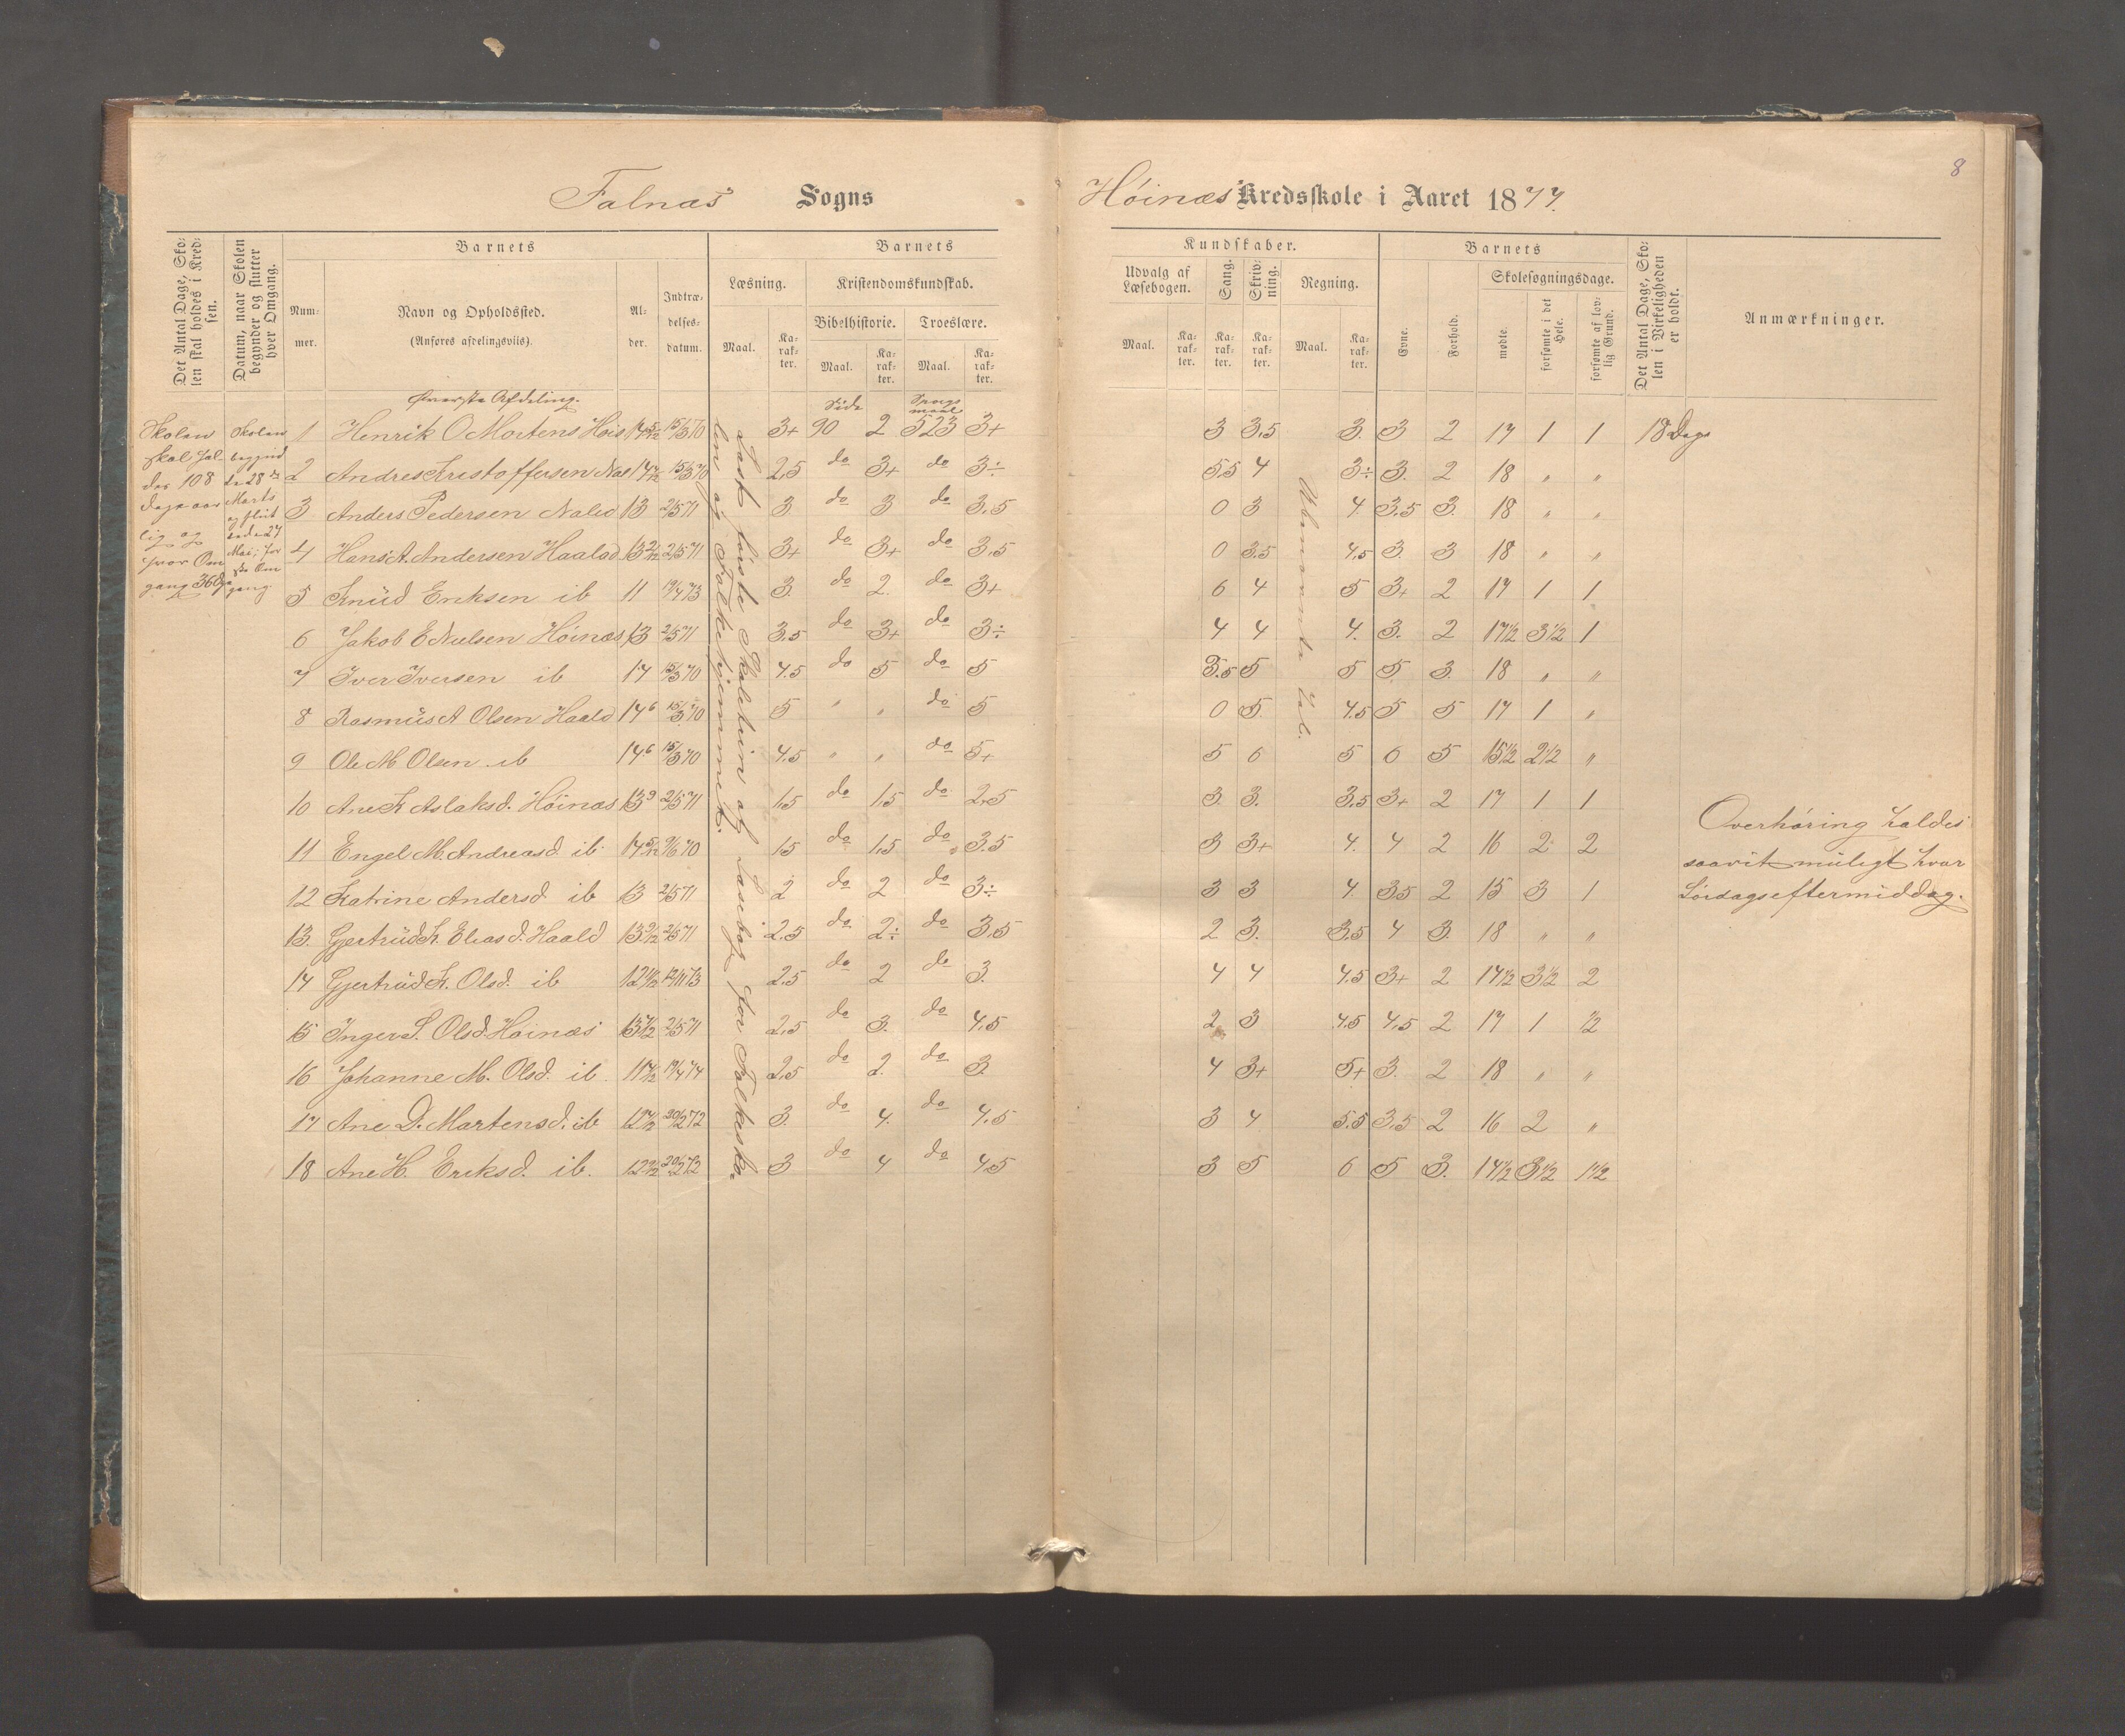 8
Falnæs Sogns
Høinæs Kredsskole i Aaret 1877.
Det Antal Dage, Skolen skal holdes i Kredsen.
Datum, naar Skolen begynder og slutter hver Omgang.
Barnets
Nummer.
Navn og Opholdssted.
(Anføres afdelingsvils).
Alder.
Indtrædelsesdatum.
Barnets
Læsning.
Maal.
Karakter.
Kristendomskundskab.
Bibelhistorie.
Maal.
Karakter.
Troeslære.
Maal.
Karakter.
Kundskaber.
Udvalg af Læsebogen.
Maal.
Karakter.
Sang.
Karakter.
Skrivning.
Karakter.
Regning.
Maal.
Karakter.
Barnets
Evne.
Forhold.
Skolesøgningsdage.
mødte.
forsømte i det Hele.
forsømte af lovlig Grund.
Det Antal Dage, Skolen i Virkeligheden er holdt.
Anmærkninger.
Øverste Afdeling.
Side
Spørgsmaal
Skolen
skal hol-
des 108
dage aar
lig og
hver Om
gang 36 Dge
Skolen
begynd
te 28de
Marts
og slut
tede 27
Mai; før
ste Om
gang.
1 Henrik O Mortens Høis 14 5/12 15/3 70 3+ 90 2 523 3+ 3 3,5 3. 3 2 17 1 1 18 Dage
2 Andres Kristoffersen Næs 14 15/3 70 2,5 do 3+ do 3÷ 5,5 4 3÷ 3. 2 18 " "
3 Anders Pedersen 13 2/5 71 3 do 3 do 3,5 0 3 4 3,5 3. 18 " "
4 Hans A. Andersen Haaland 13 2/12 2/5 71 3+ do 3+ do 3,5 0 3.5 4,5 3. 3 18 " "
5 Knud Eriksen ib 11 19/4 73 3. do 2. do 3+ 6 4 5 3+ 2 17 1 1
6 Jakob E Nielsen Høinæs 13 2/5 71 3,5 do 3+ do 3÷ 4 4 4. 3. 2 17 1/2 3 1/2 1
7 Iver Iversen ib 14 15/3 70 4.5 do 5 do 5 5.5 5 5 5 3 18 " "
8 Rasmus A Olsen Haald 14 6 15/3 70 5 " " do 5 0 5. 4.5 5 5 17 1 "
9 Ole M Olsen ib 14 6 15/3 70 4.5 " " do 5+ 5 6 5 6 5 15 1/2 2 1/2 "
10 Ane K Aslaksd. Høinæs 13 9 2/5 71 1,5 do 1,5 do 2,5 3. 3. 3,5 3+ 2 17 1 1
11 Engel M. Andreasd ib 14 5/12 9/6 70 1,5 do 1,5 do 3.5 3 3+ 4. 4 2 16 2 2
12 Katrine Andersd ib 13 2/5 71 2 do 2 do 3÷ 3 3 4. 3,5 2 15 3 1
13. Gjertrud K. Eliasd. Haald 13 9/12 2/5 71 2,5 do 2÷ do 3,5 2 3. 3,5 4 3. 18 " "
14 Gjertrud K. Olsd. ib 12 2,5 do 2 do 3. 4 4 4.5 3+ 2 14 1/2 3 1/2 2
15 Inger S. Olsd. Høinæs 13 7/12 2/5 71 2,5 do 3. do 4,5 2 3 4,5 4,5 2 17 1 1/2
16 Johanne M. Olsd. ib. 11 7/12 19/4 74 2,5 do 2. do 3. 4 3+ 5+ 3. 2 18 " "
17 Ane D. Martensd. ib 12 7/12 20/2 72 3. do 4. do 4,5 3 4 5.5 3,5 2 16 2 "
18 Ane H. Eriksd. ib. 12 20/2 72 3 do 4 do 4,5 3 5 6 5 3. 14 1/2 3 1/2 1 1/2
Læst første Skoletrin af Læsebog for Folkesko-
len og Folkehjemmet.
Ubenævnte Tal.
Overhøring holdes
saavit muligt hver
Lørdagseftermiddag.